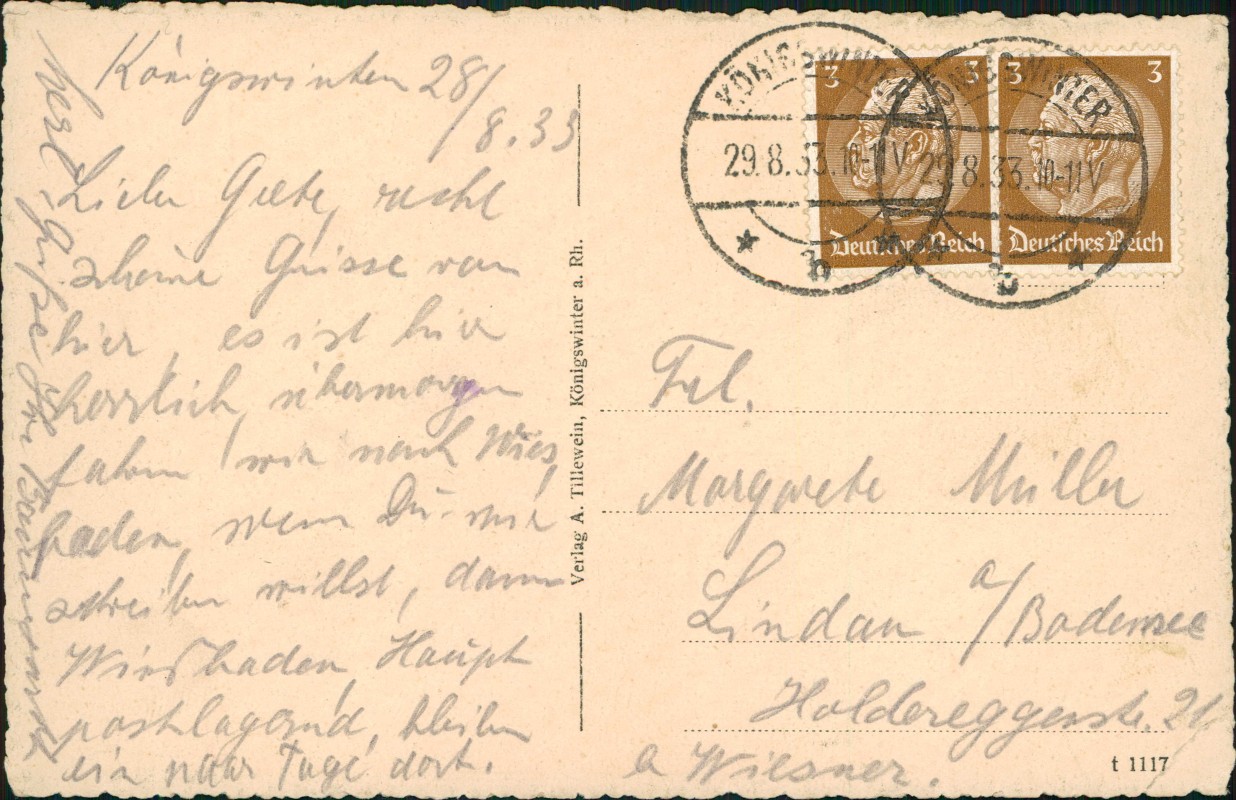 Königswinter 28/
8.33
Liebe Grete, recht
schöne Grüsse von
hier, es ist hier
herrlich, übermorgen
fahren wir nach Wies,
baden, wenn Du mir
schreiben willst, dann
Wiesbaden, Haupt
postlagernd, bleiben
ein paar Tage dort.
Herzl. Grüße
Verlag A. Tillewein, Königswinter a. Rh.
KÖNIGSWINTER
29.8.33.10-11V
★ b ★
KÖNIGSWINTER
29.8.33.10-11V
★ b ★
3 3
Deutsches Reich
3 3
Deutsches Reich
Frl.
Margarete Müller
Lindau a/Bodensee
Holdereggerstr. 21
a Wiesner.
t 1117